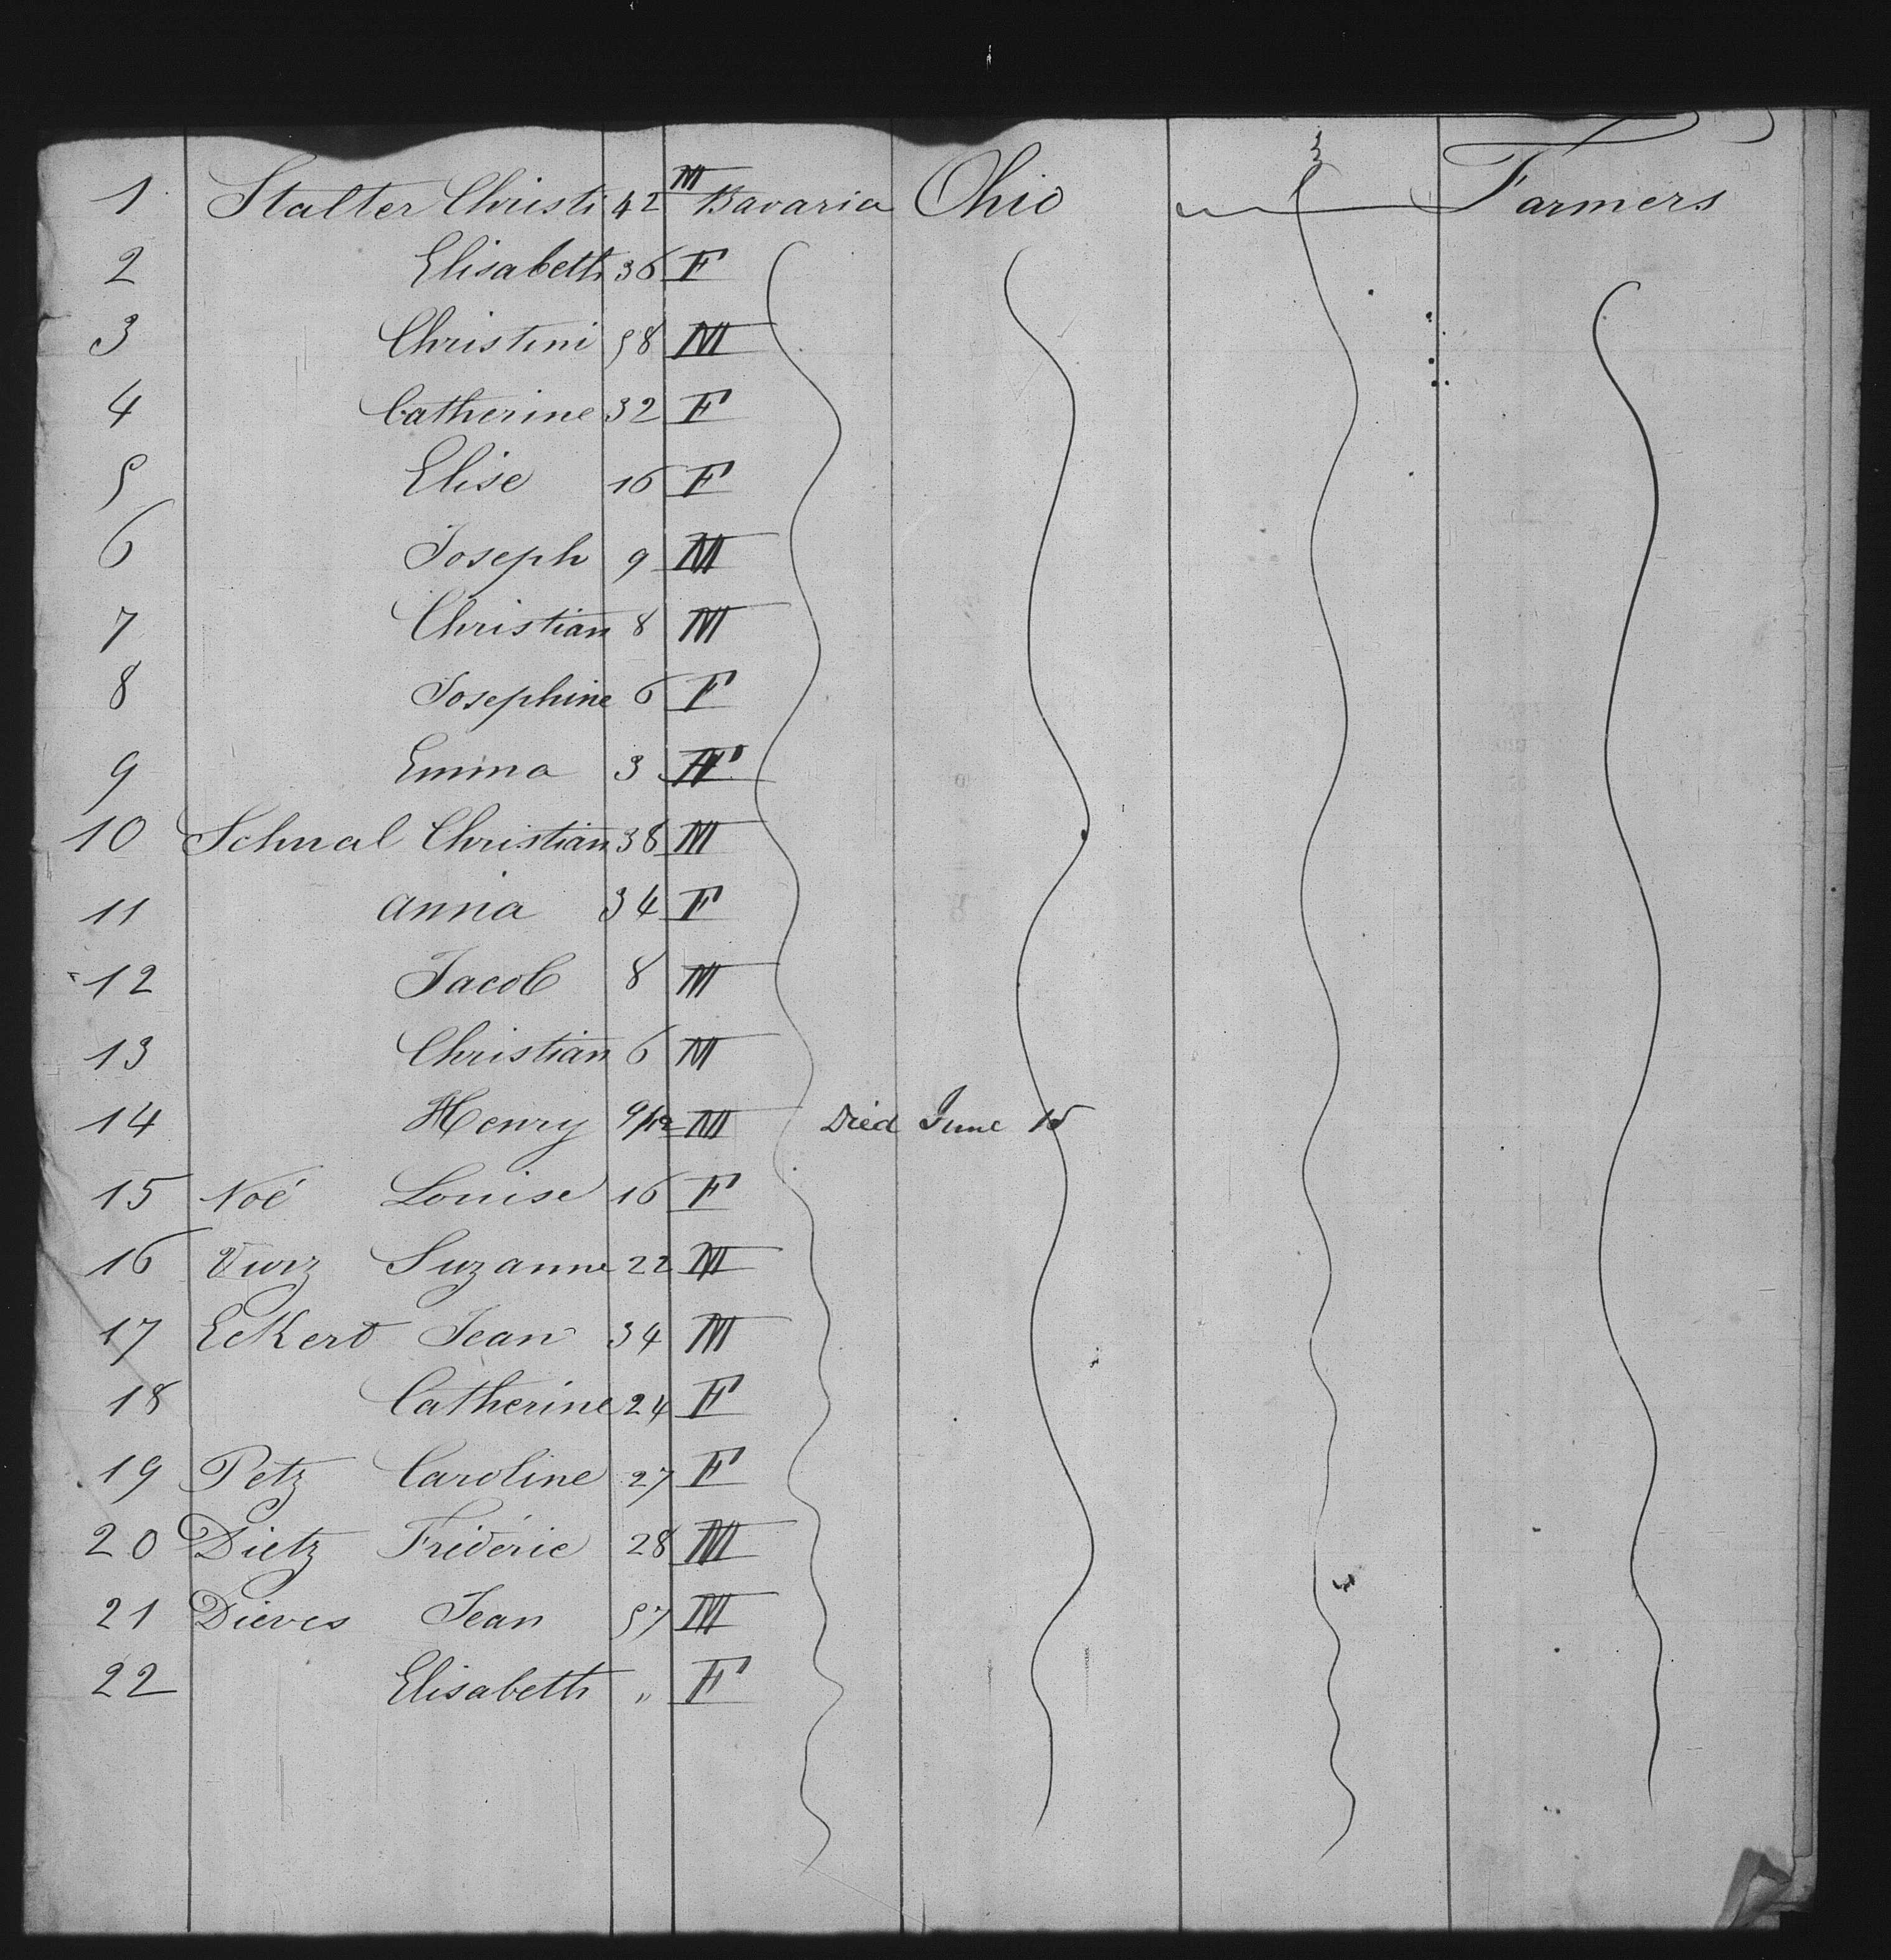 1 Stalter Christi 42 M Bavaria Ohio Farmers
2 Elisabeth 36 F
3 Christini 58 M
4 Catherine 32 F
5 Elise 16 F
6 Joseph 9 M
7 Christian 8 M
8 Josephine 6 F
9 Emma 3 F
10 Schnal Christian 38 M
11 anna 34 F
12 Jacob 8 M
13 Christian 6 M
14 Henry 9/12 M Died June 15
15 Noé Louise 16 F
16 Suzanne 22 M
17 Eckert Jean 34 M
18 Catherine 24 F
19 Petz Caroline 27 F
20 Dietz Fréderic 28 M
21 Dieves Jean 57 M
22 Elisabeth " F